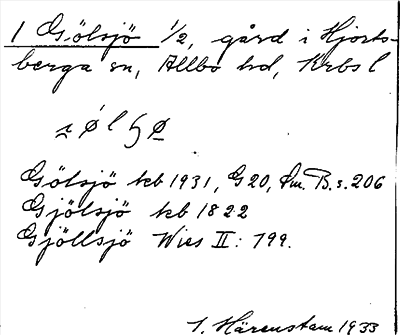 1 Gölsjö 1/2, gård i Hjorts-
berga sn, Allbo hd, Krbs l
Gölsjö kb 1931, G20, Sm. B. s. 206
Gjölsjö kb 1822
Gjöllsjö Wies II: 199.
I. Härenstam 1933